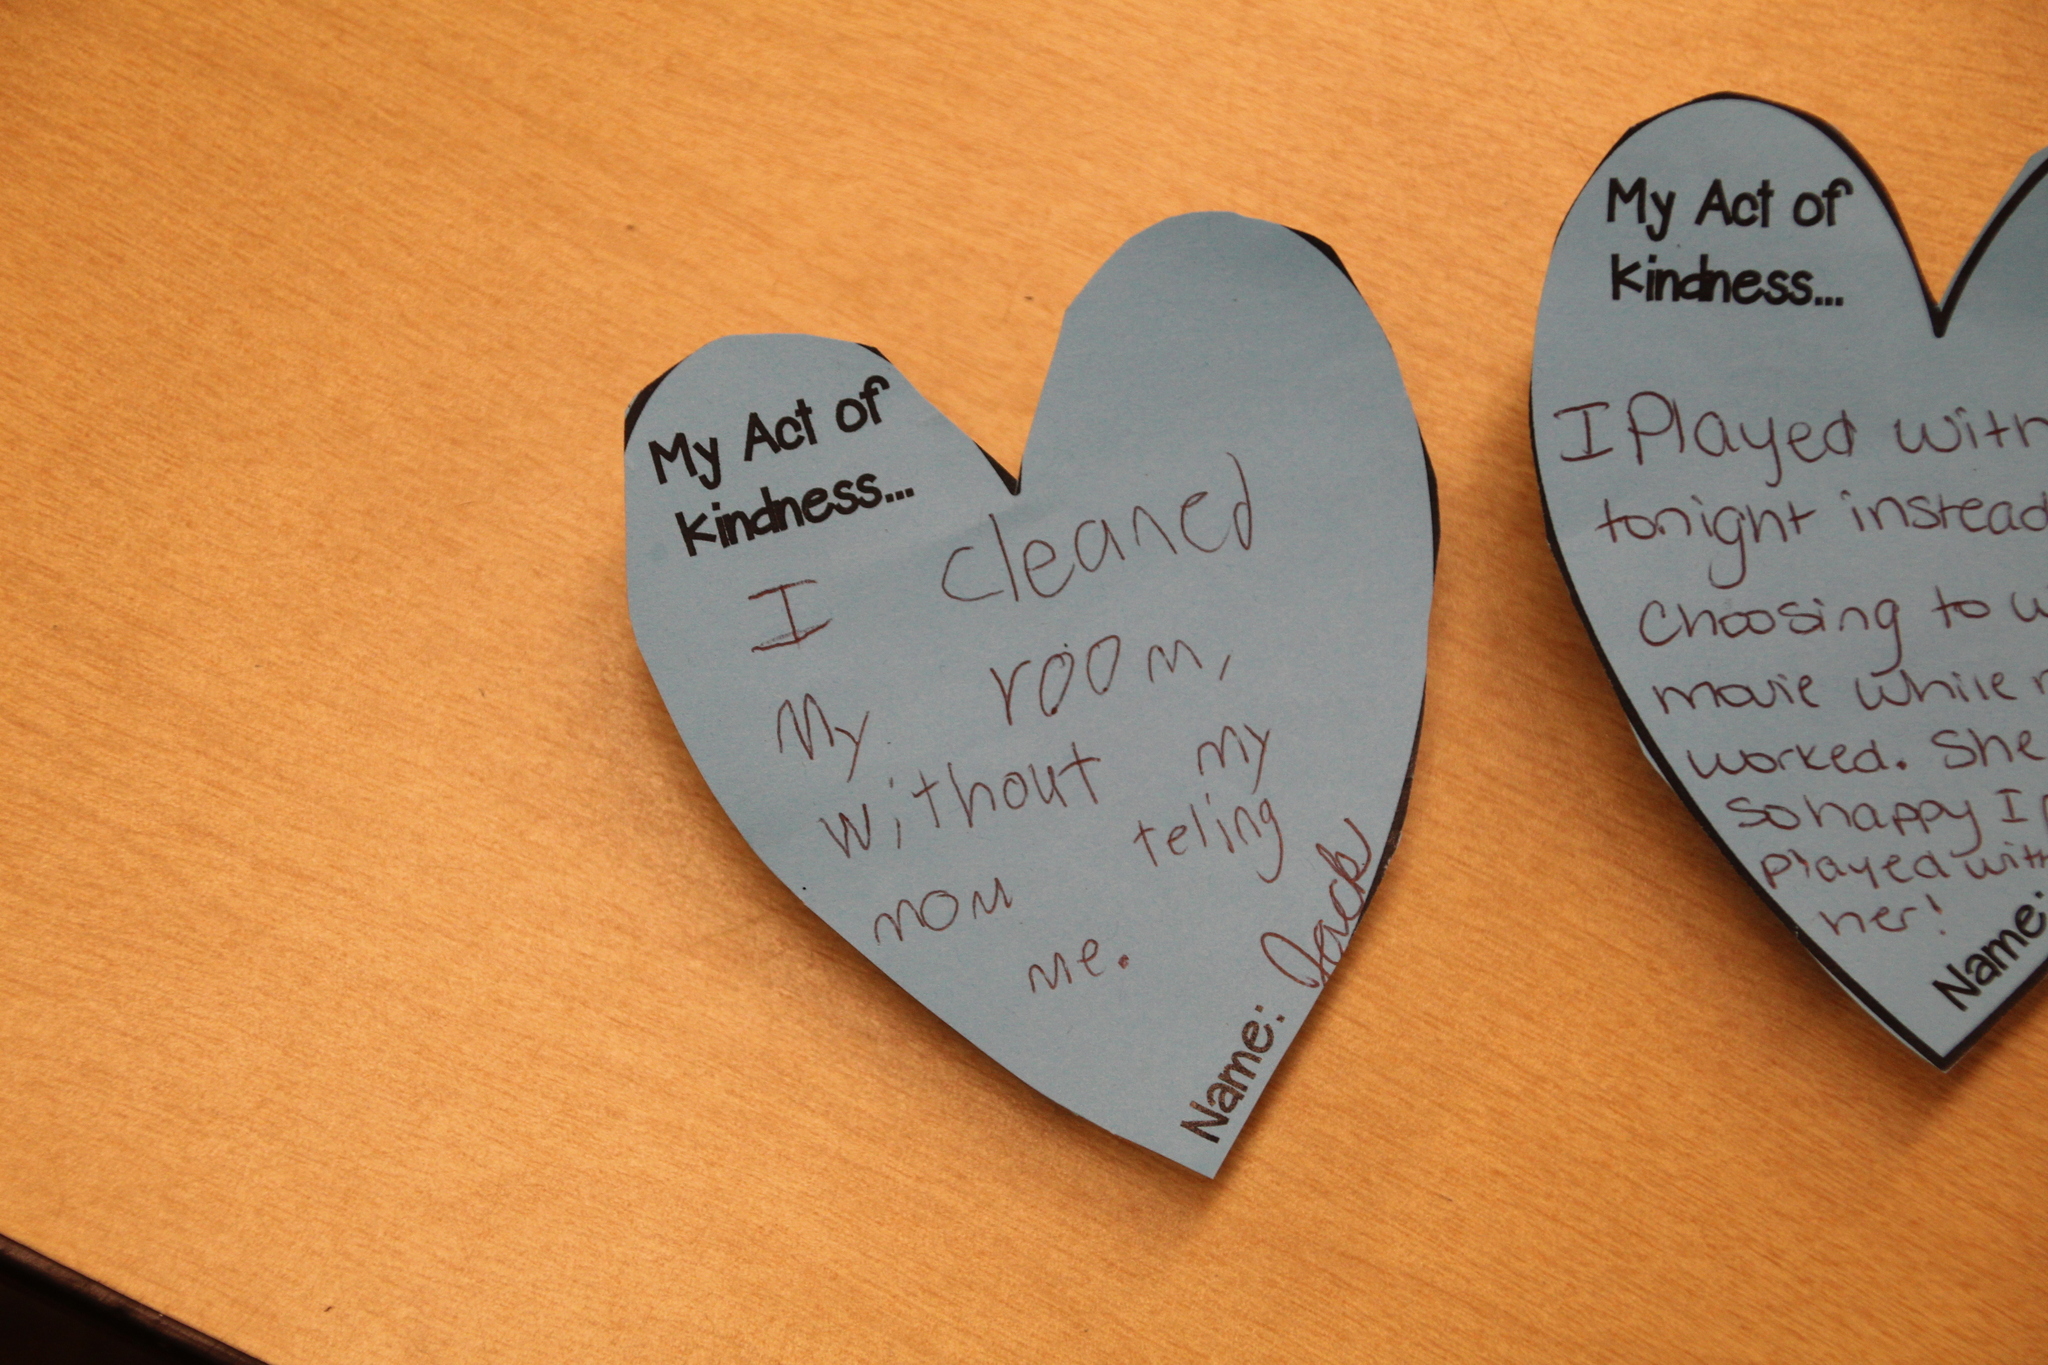 My Act of
Kindness...
I cleaned
My room,
without my
mom teling
me.
Name: Jack
My Act of
Kindness...
I Played with
tonight instead
choosing to
movie while
worked. She
so happy I
played with
her!
Name: